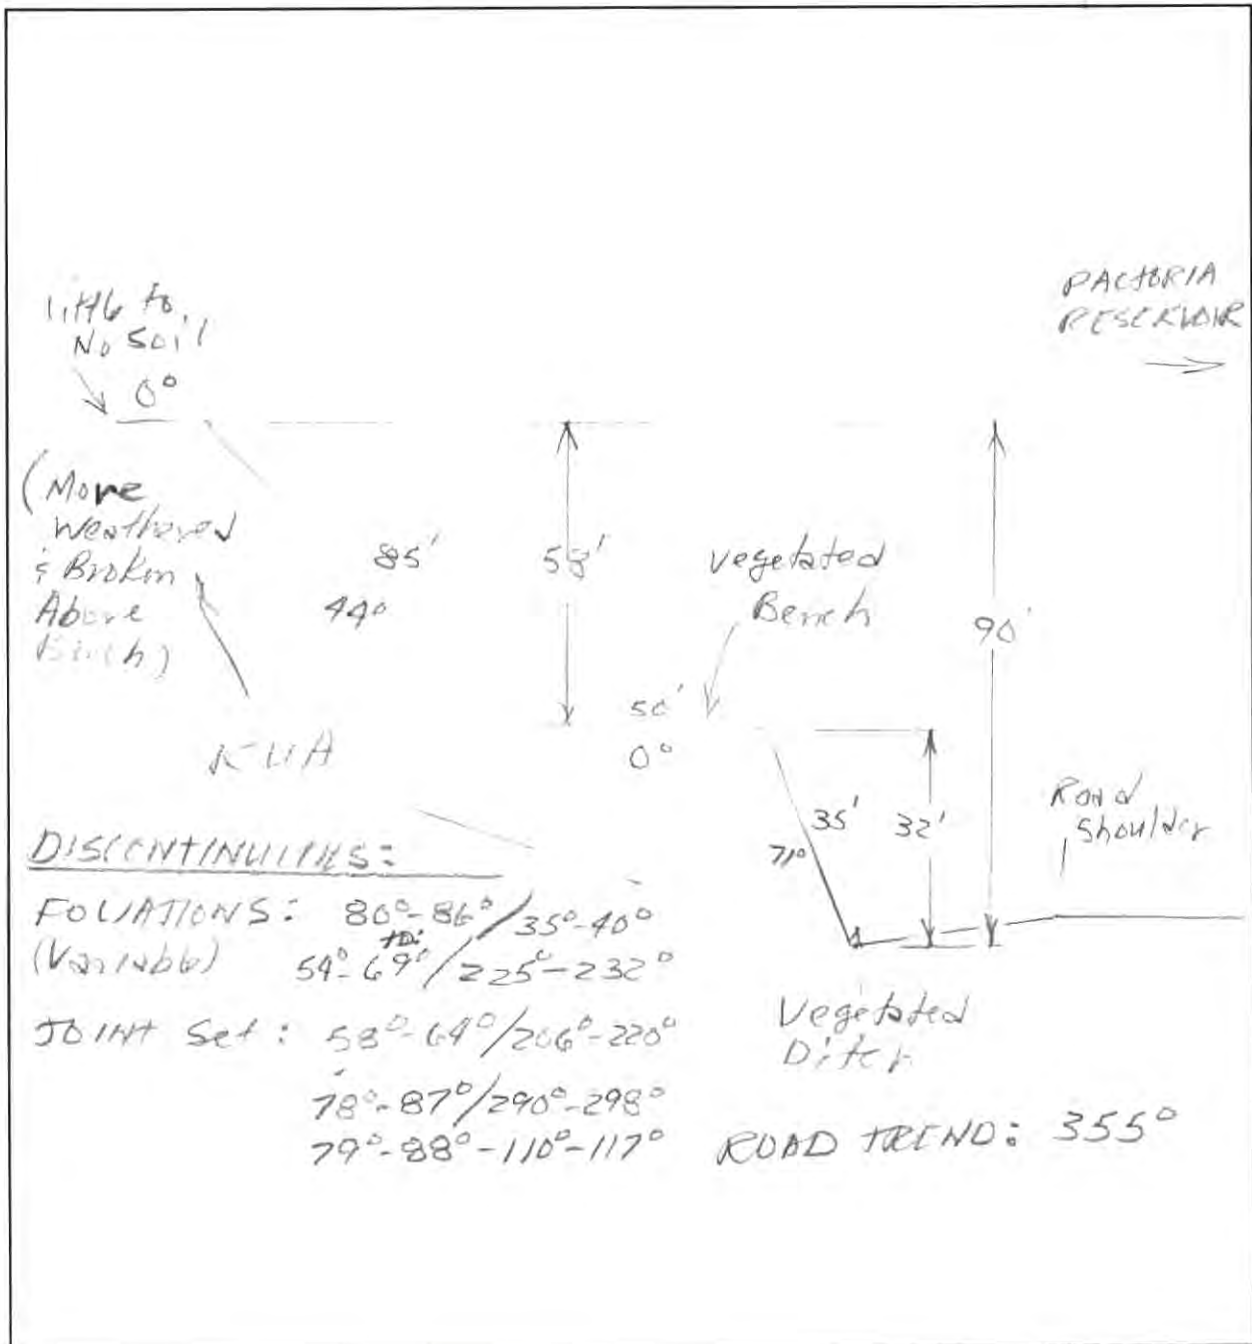 little to
No soil
0°
PACTORIA
RESERVOIR
(More
Weathered
& Broken
Above
Bench)
85'
44°
58'
Vegetated
Bench
90'
50'
0°
35'
32'
71°
Road
Shoulder
DISCONTINUITIES:
FOLIATIONS: 80°-86°/35°-40°
(Variable) to:
54°-69°/225°-232°
JOINT Set: 58°-64°/206°-220°
78°-87°/290°-298°
79°-88°-110°-117°
Vegetated
Ditch
ROAD TREND: 355°